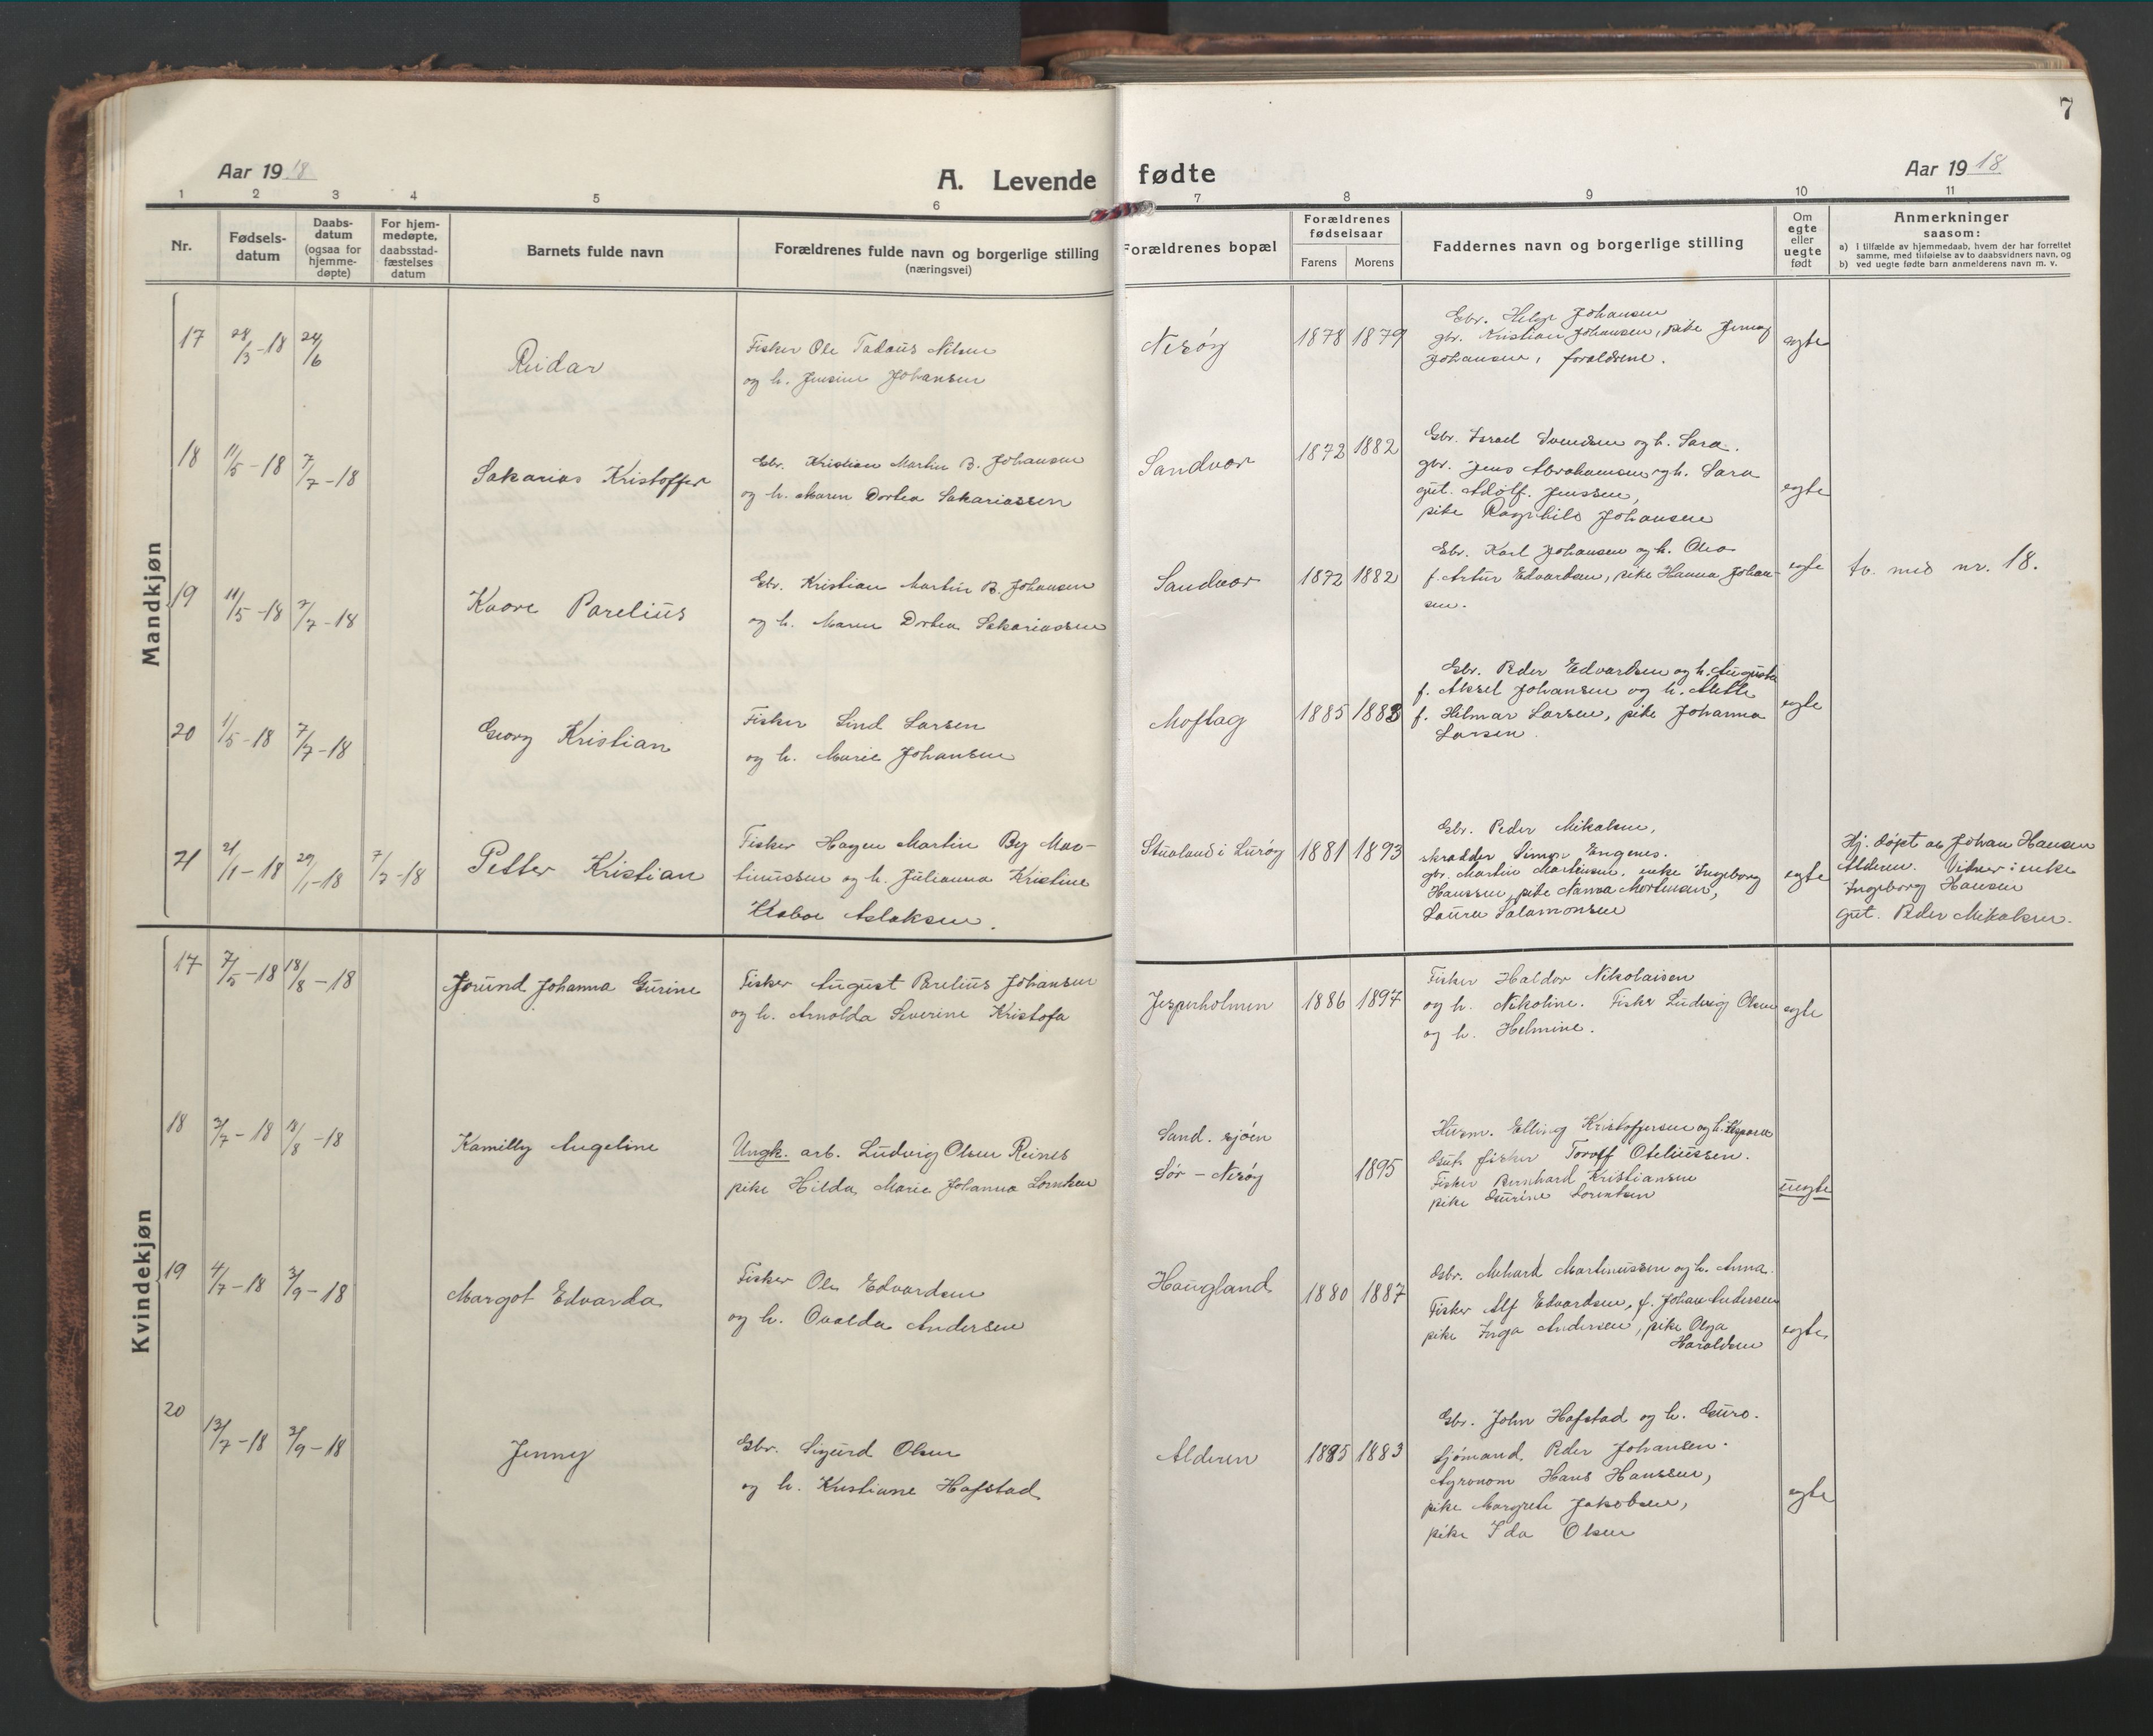 7
Aar 1918
A. Levende fødte
Aar 1918
1 2 3 4 5 6 7 8 9 10 11
Nr.
Fødsels-
datum
Daabs-
datum
(ogsaa for
hjemme-
døpte)
For hjem-
medøpte,
daabsstad-
fæstelses
datum
Barnets fulde navn
Forældrenes fulde navn og borgerlige stilling
(næringsvei)
Forældrenes bopæl
Forældrenes
fødselsaar
Farens Morens
Faddernes navn og borgerlige stilling
Om
egte
eller
uegte
født
Anmerkninger
saasom:
a) I tilfælde av hjemmedaab, hvem der har forrettet
samme, med tilføielse av to daabsvidners navn, og
b) ved uegte fødte barn anmelderens navn m. v.
Mandkjøn
17 24/3-18 24/6
Reidar
Fisker Ole Tadæus Nilsen
og h. Jensine Johansen
Nesøy
1878 1879
Gbr. Helge Johansen
gbr. Kristian Johansen, pike Jenny
Johansen, foraldrene.
egte
18 11/5-18 7/7-18
Sakarias Kristoffer
Gbr. Kristian Martin B. Johansen
og h. Maren Dortea Sakariassen
Sandvær
1872 1882
Gbr. Israel Svendsen og h. Sara.
gbr. Jens Abrahamsen og h. Sara
gut. Adolf. Jenssen,
pike Ragnhild Johansen
egte
19 11/5-18 7/7-18
Kaare Parelius
Gbr. Kristian Martin B. Johansen
og h. Maren Dortea Sakariassen
Sandvær
1872 1882
Gbr. Karl Johansen og h. Olea
f. Artur Edvardsen, pike Hanna Johan-
sen.
egte
tv. med nr. 18.
20 1/5-18 7/7-18
Georg Kristian
Fisker Lind Larsen
og h. Marie Johansen
Moflag
1885 1888
Gbr. Peder Edvardsen og h. Augusta
f. Aksel Johansen og h. Alette
f. Hilmar Larsen, pike Johanna
Larsen.
egte
21 21/1-18 29/1-18 7/7-18
Petter Kristian
Fisker Hagen Martin By Mar-
tinussen og h. Julianna Kristine
Aslaksen.
Stualand i Lurøy
1881 1893
Gbr. Peder Mikalsen,
skrædder Simon Engenes.
gbr. Martin Martinsen, enke Ingeborg
Hanssen, pike Nanna Mortensen,
Laura Salamonsen
egte
Hj. døpt av Johan Hansen
Alderen. Vitner: enke
Ingeborg Hansen
gut. Peder Mikalsen.
Kvindekjøn
17 7/5-18 18/8-18
Jorund Johanna Gurine
Fisker August Parelius Johansen
og h. Arnolda Severine Kristofa
Jesperholmen
1886 1897
Fisker Haldor Nikolaisen
og h. Nikoline. Fisker Ludvig Olsen
og h. Helmine.
egte
18 2/7-18 18/8-18
Kamilly Angeline
Ungk. arb. Ludvig Olsen Reines
pike Hilda Marie Johanna Lorntsen
Sand. sjøen
Sør-Nesøy
1895
Husm. Elling Kristoffersen og h.
Gut fisker Toralf Oteliussen.
Fisker Bernhard Kristiansen
pike Gurine Lorentsen
uegte
19 4/7-18 3/9-18
Margot Edvarda
Fisker Ole Edvardsen
og h. Ovalda Andersen
Haugland
1880 1887
Gbr. Mehard Martinussen og h. Anna.
Fisker Alf Edvardsen, f. Johan Andersen
pike Inga Andersen, pike Olga
Haraldsen
egte
20 13/7-18 3/9-18
Jenny
Gbr. Sigurd Olsen
og h. Kristiane Hafstad
Alderen
1885 1883
Gbr. John Hafstad og h. Guro.
Sjømand Peder Johansen.
Agronom Hans Hanssen,
pike Margrete Jakobsen,
pike Ida Olsen
egte